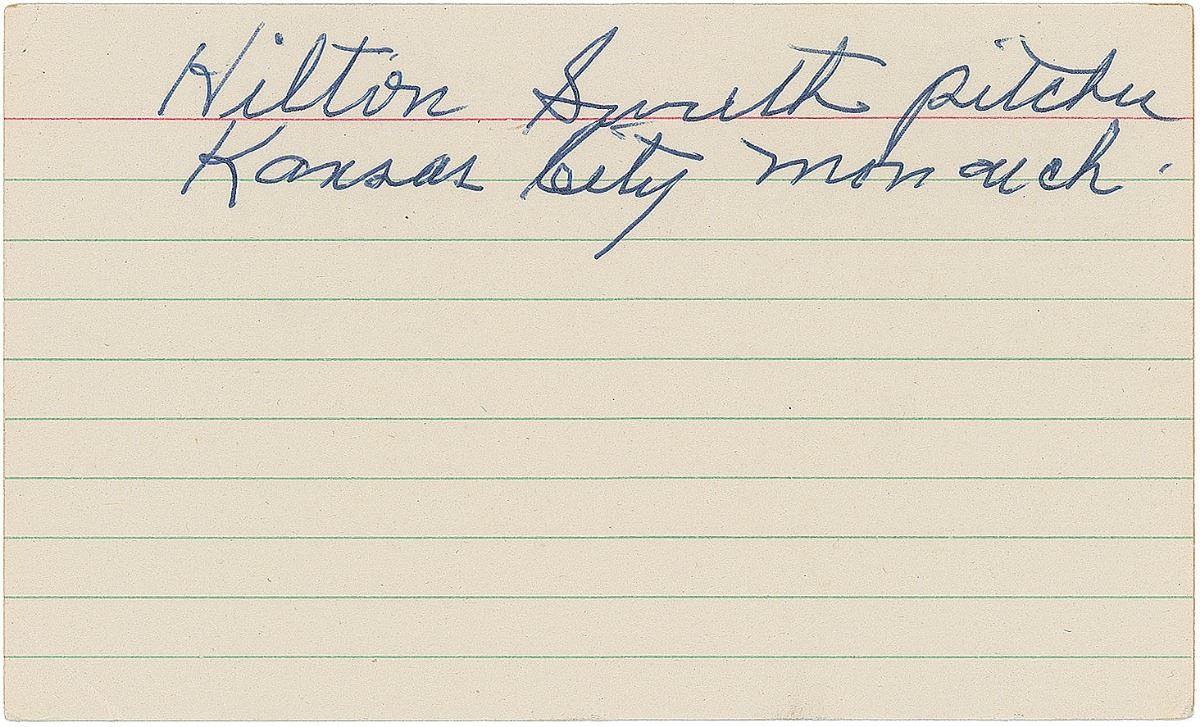 Hilton Smith pitcher
Kansas City monarch.